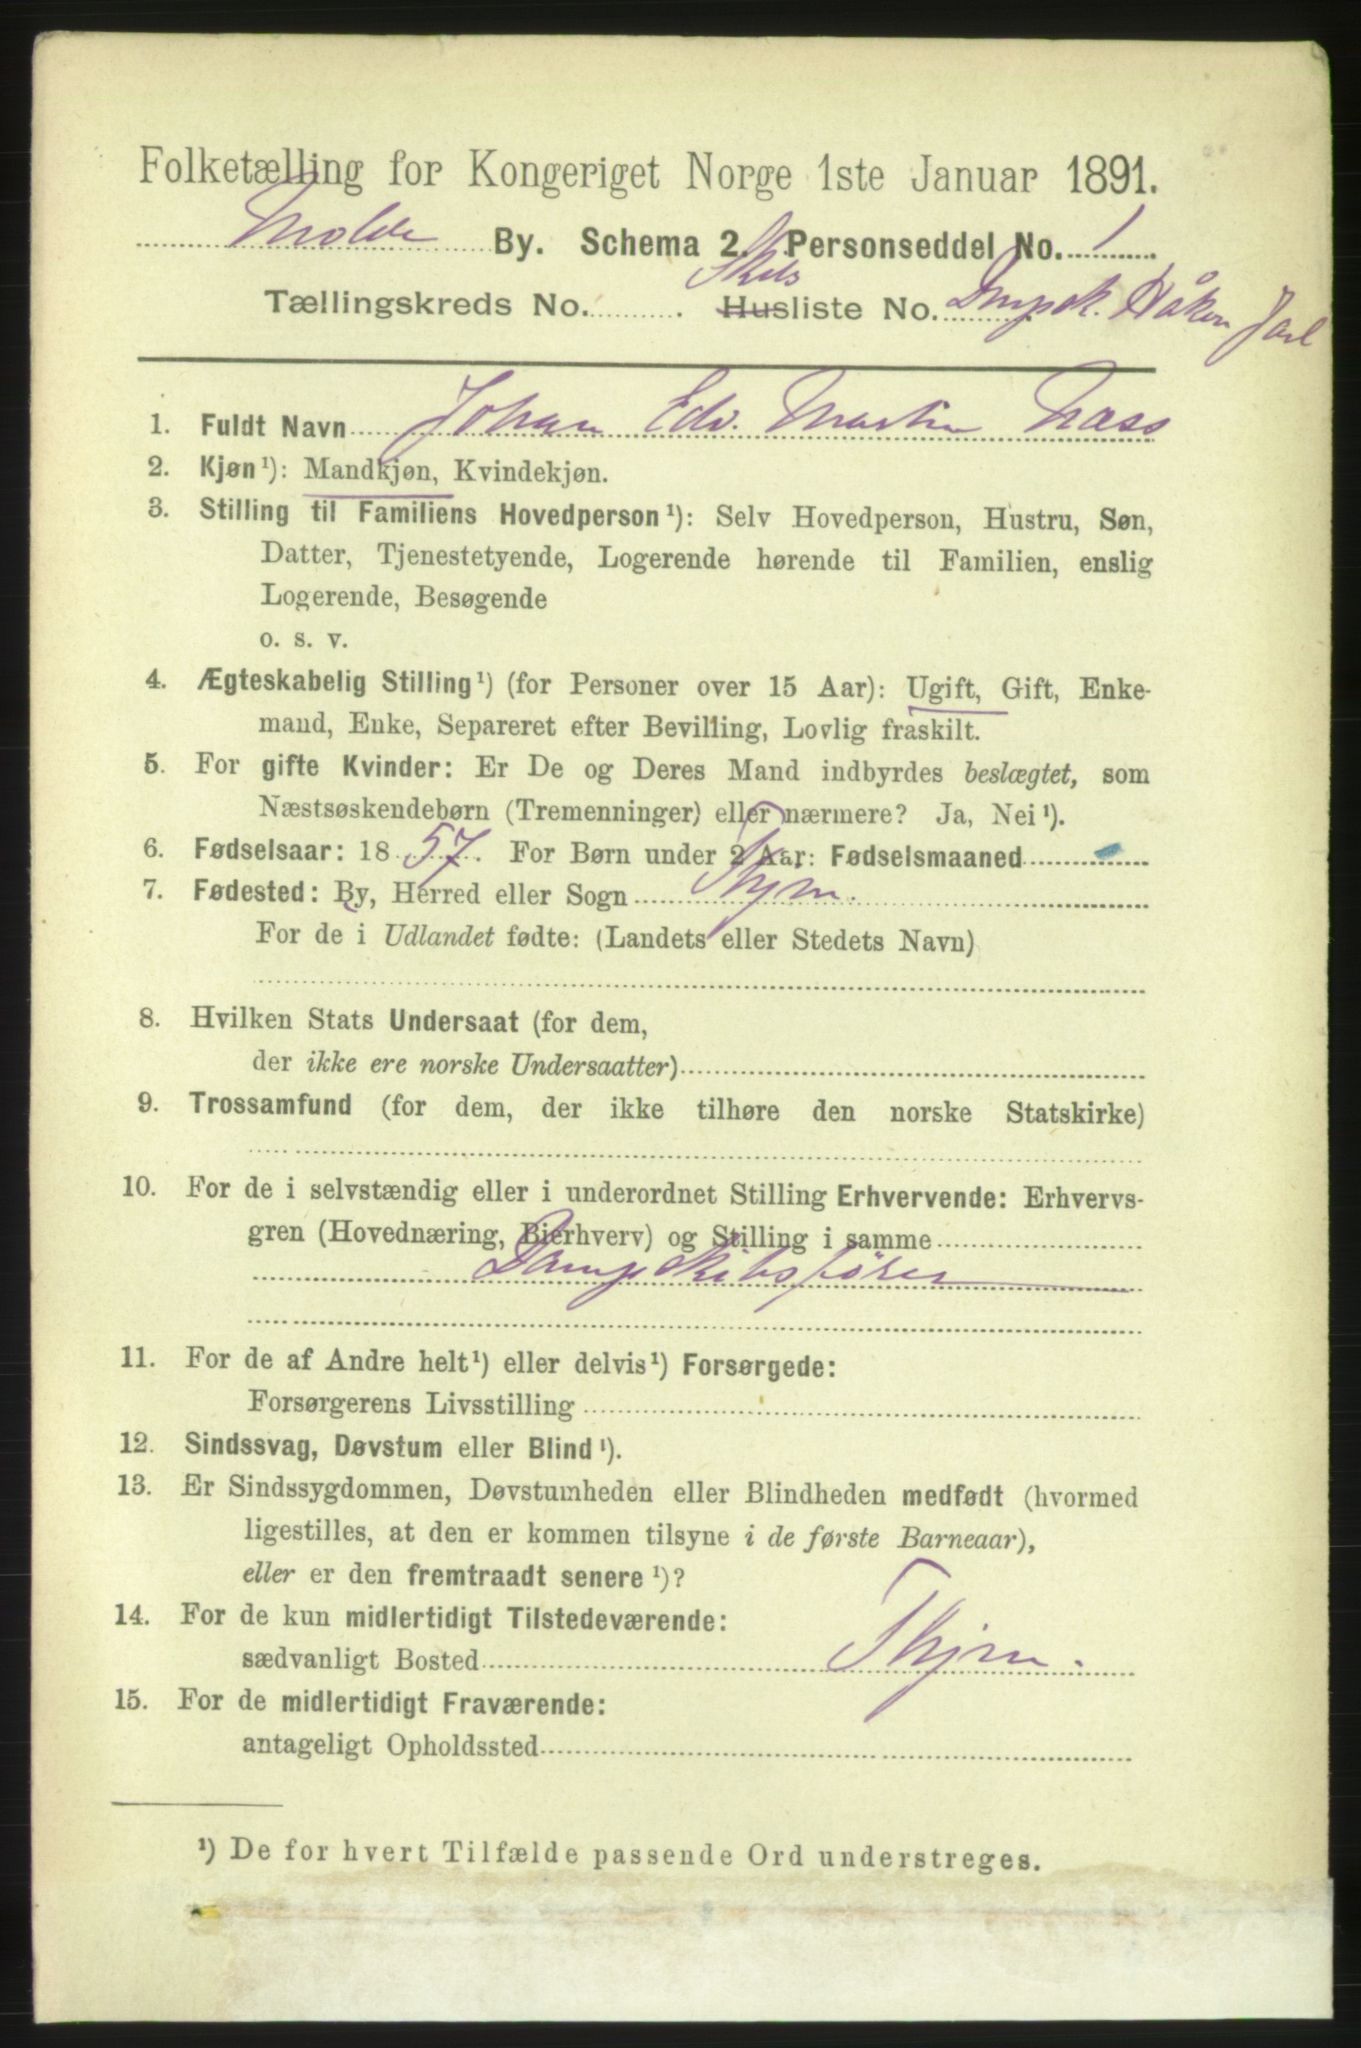 Folketælling for Kongeriget Norge 1ste Januar 1891.
Molde By. Schema 2. Personseddel No. 1
Tællingskreds No. . Skibs Husliste No. Dmpsk. Håkon Jarl
1. Fuldt Navn Johan Edv. Martin Næss
2. Kjøn¹): Mandkjøn, Kvindekjøn.
3. Stilling til Familiens Hovedperson¹): Selv Hovedperson, Hustru, Søn,
Datter, Tjenestetyende, Logerende hørende til Familien, enslig
Logerende, Besøgende
o. s. v.
4. Ægteskabelig Stilling¹) (for Personer over 15 Aar): Ugift, Gift, Enke-
mand, Enke, Separeret efter Bevilling, Lovlig fraskilt.
5. For gifte Kvinder: Er De og Deres Mand indbyrdes beslægtet, som
Næstsøskendebørn (Tremenninger) eller nærmere? Ja, Nei¹).
6. Fødselsaar: 1857. For Børn under 2 Aar: Fødselsmaaned
7. Fødested: By, Herred eller Sogn Thjm.
For de i Udlandet fødte: (Landets eller Stedets Navn)
8. Hvilken Stats Undersaat (for dem,
der ikke ere norske Undersaatter)
9. Trossamfund (for dem, der ikke tilhøre den norske Statskirke)
10. For de i selvstændig eller i underordnet Stilling Erhvervende: Erhvervs-
gren (Hovednæring, Bierhverv) og Stilling i samme
Dampskibsfører
11. For de af Andre helt¹) eller delvis¹) Forsørgede:
Forsørgerens Livsstilling
12. Sindssvag, Døvstum eller Blind¹).
13. Er Sindssygdommen, Døvstumheden eller Blindheden medfødt (hvormed
ligestilles, at den er kommen tilsyne i de første Barneaar),
eller er den fremtraadt senere¹)?
14. For de kun midlertidigt Tilstedeværende:
sædvanligt Bosted Thjm.
15. For de midlertidigt Fraværende:
antageligt Opholdssted
¹) De for hvert Tilfælde passende Ord understreges.